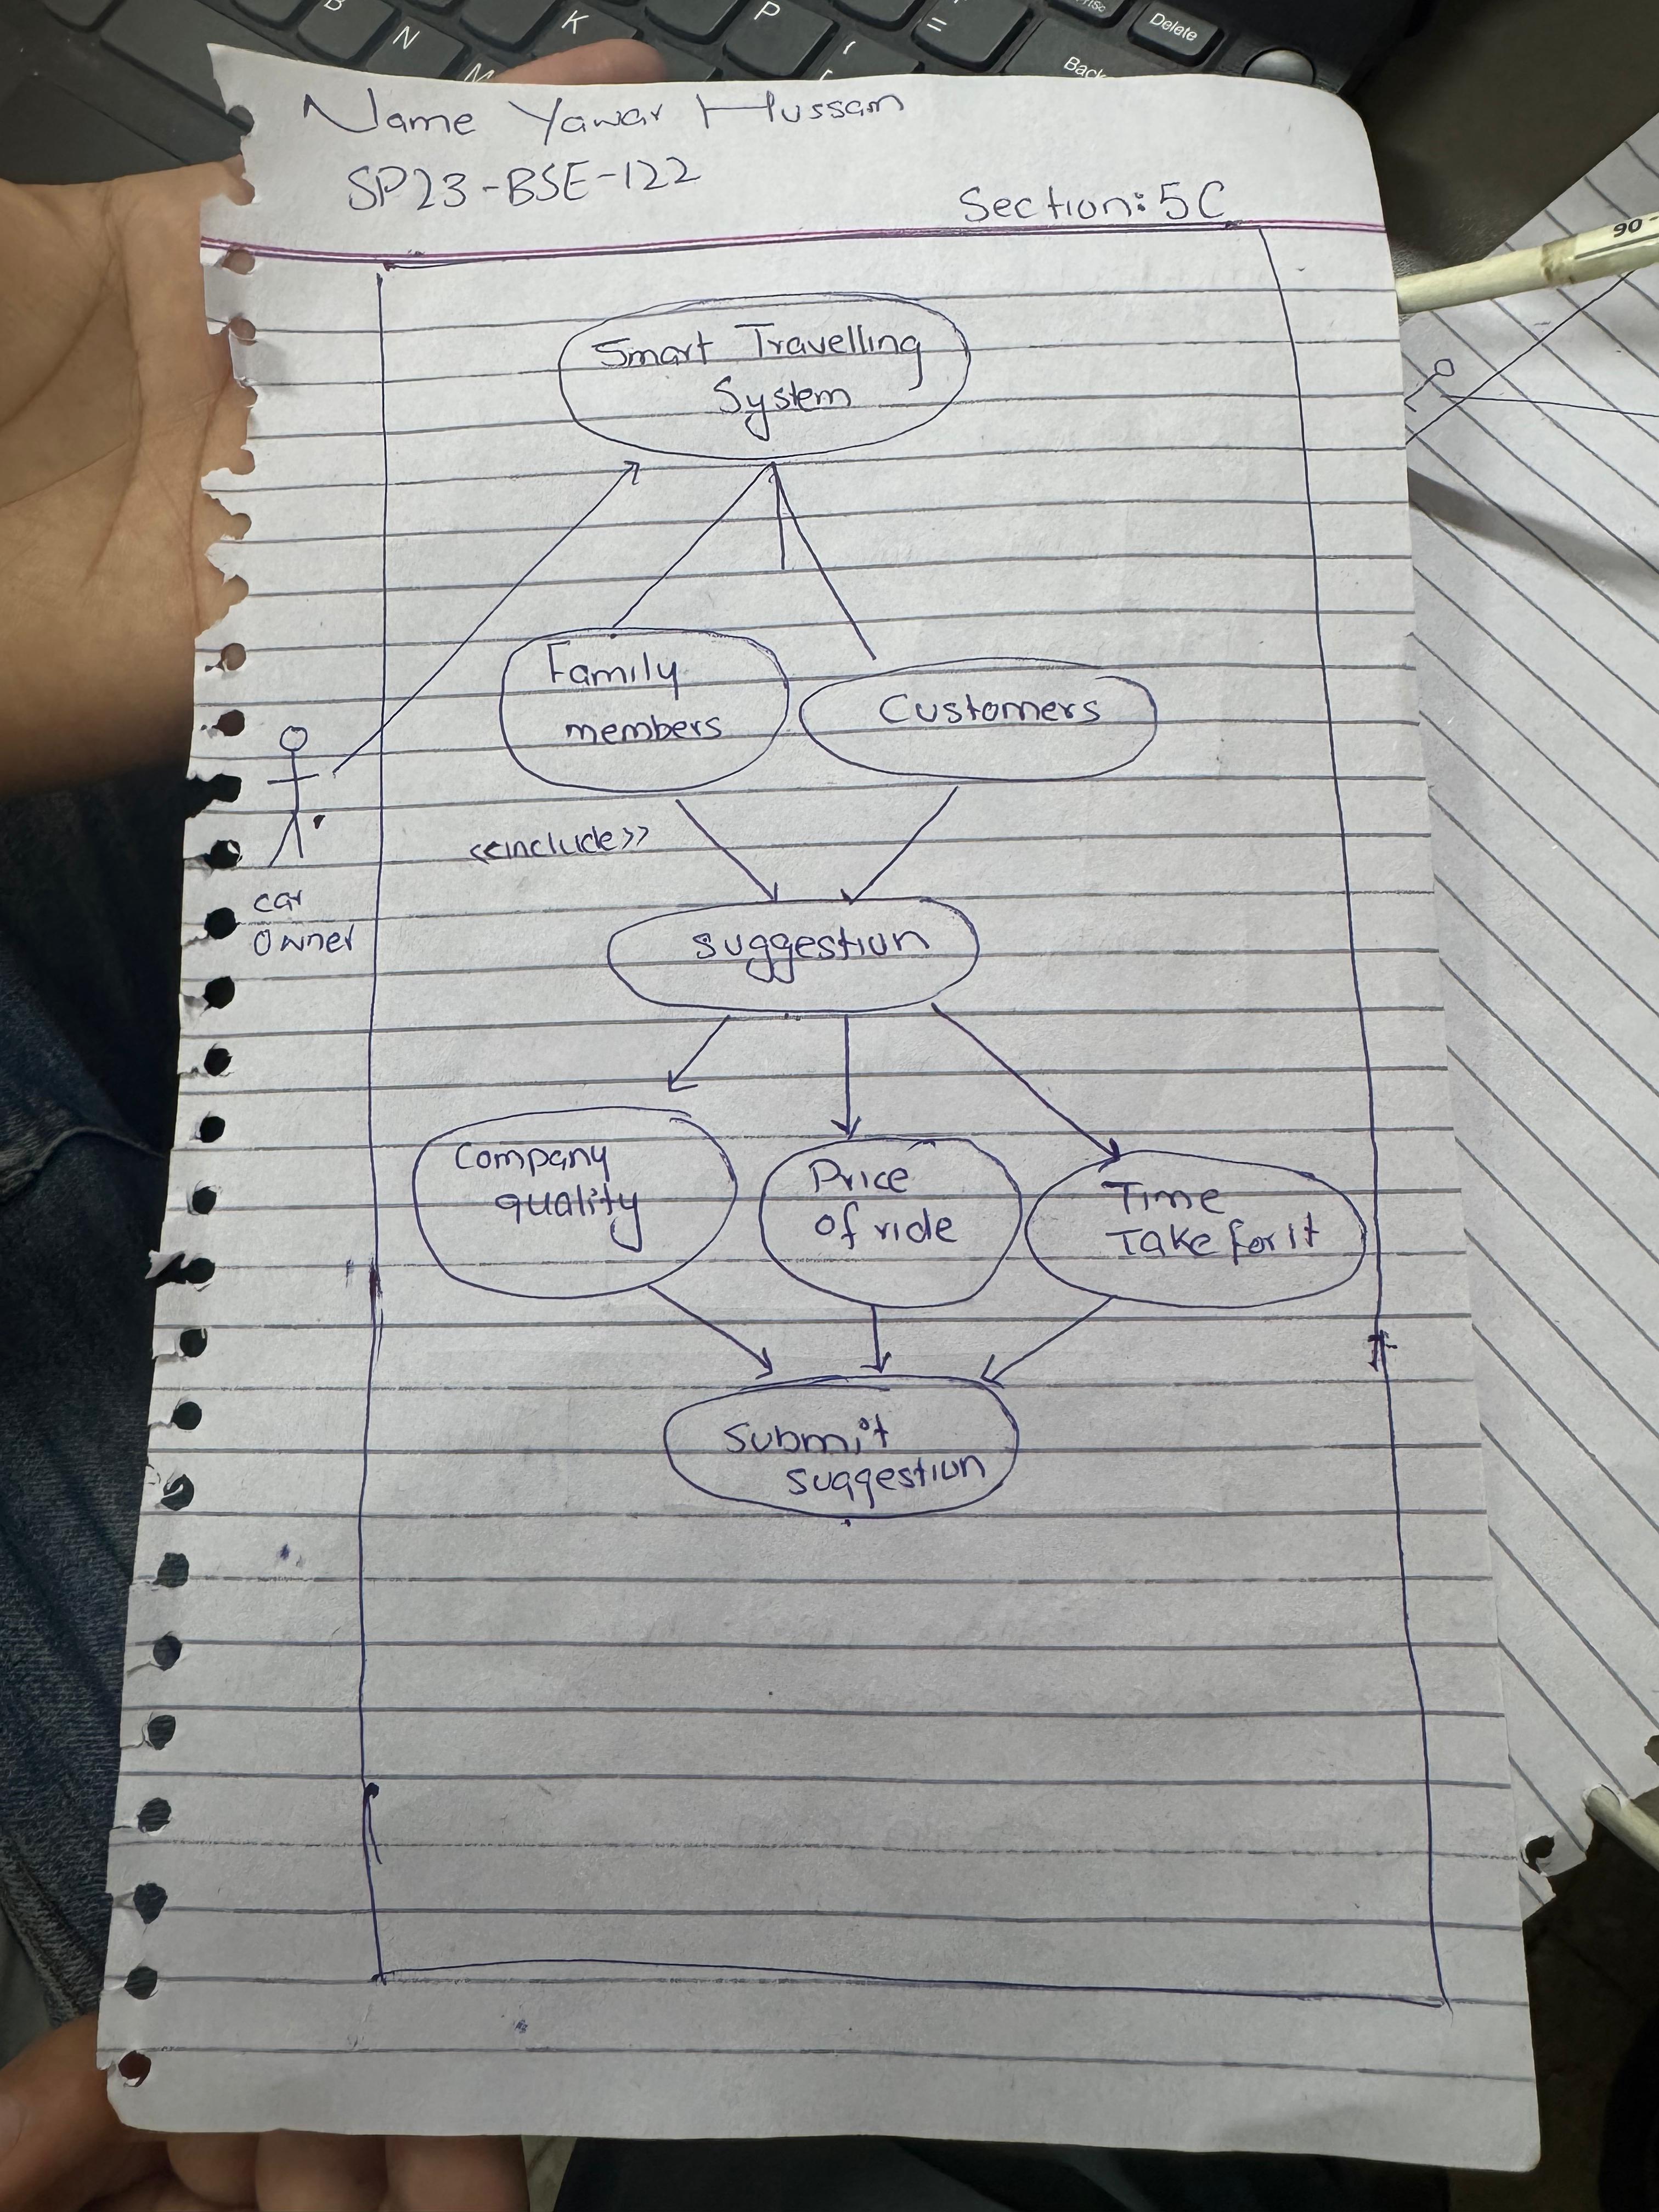 B
N
M
K
P
=
PrtSc
Delete
Back
Name Yawar Hussam
SP23-BSE-122
Section: 5C
90
Smart Travelling
System
Family
members
Customers
<<include>>
car
Owner
suggestion
Company
quality
Price
of ride
Time
Take for it
Submit
suggestion